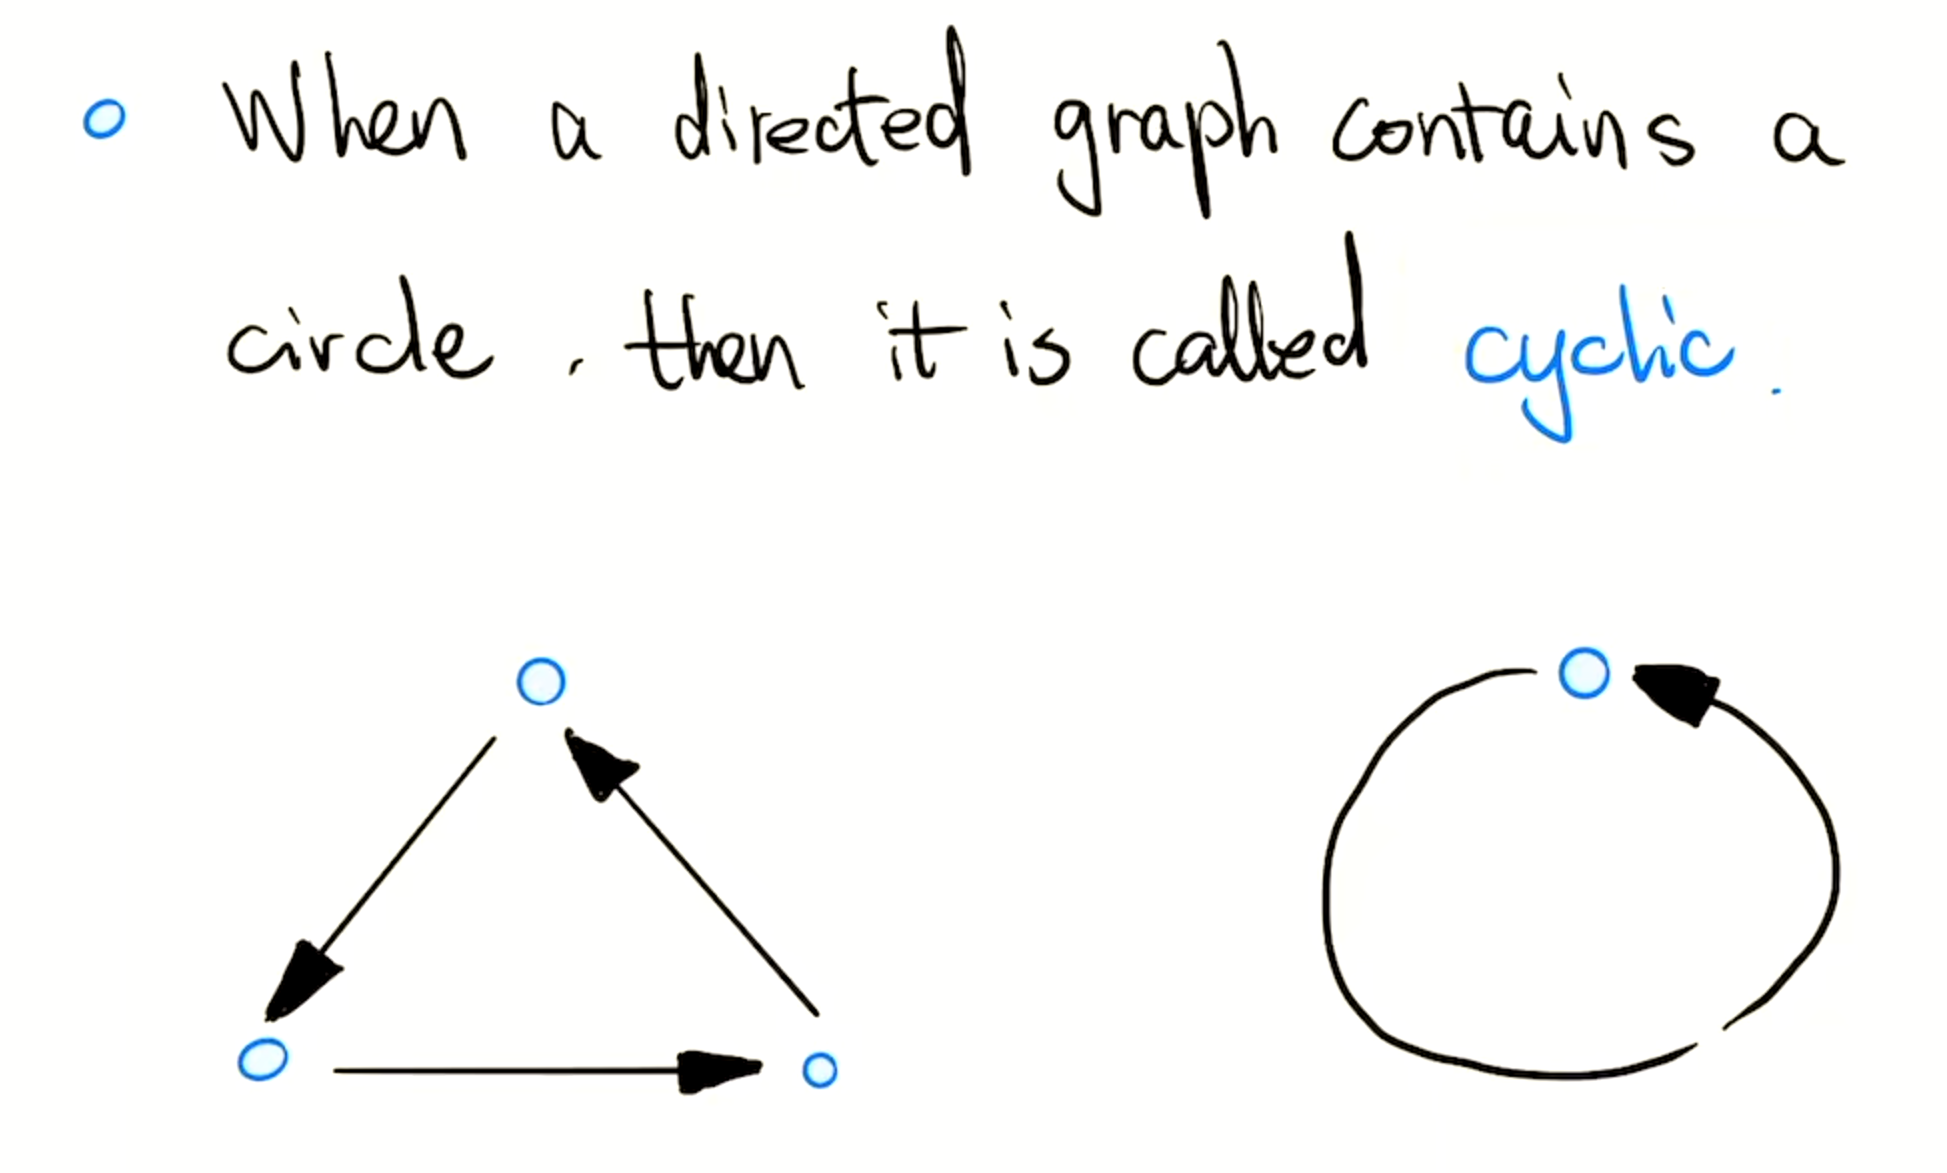 When a directed graph contains a
circle, then it is called cyclic.